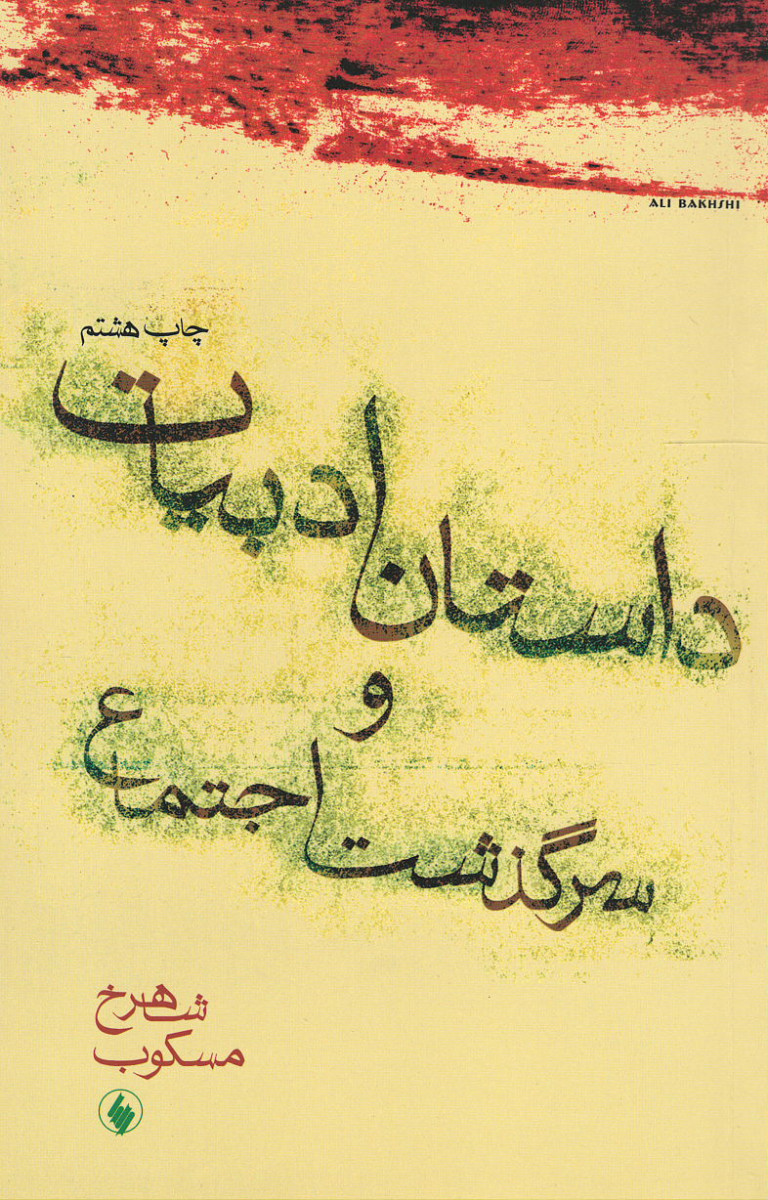 ALI BAKHSHI
چاپ هشتم
داستان ادبیات
و
سرگذشت اجتماع
شاهرخ
مسکوب